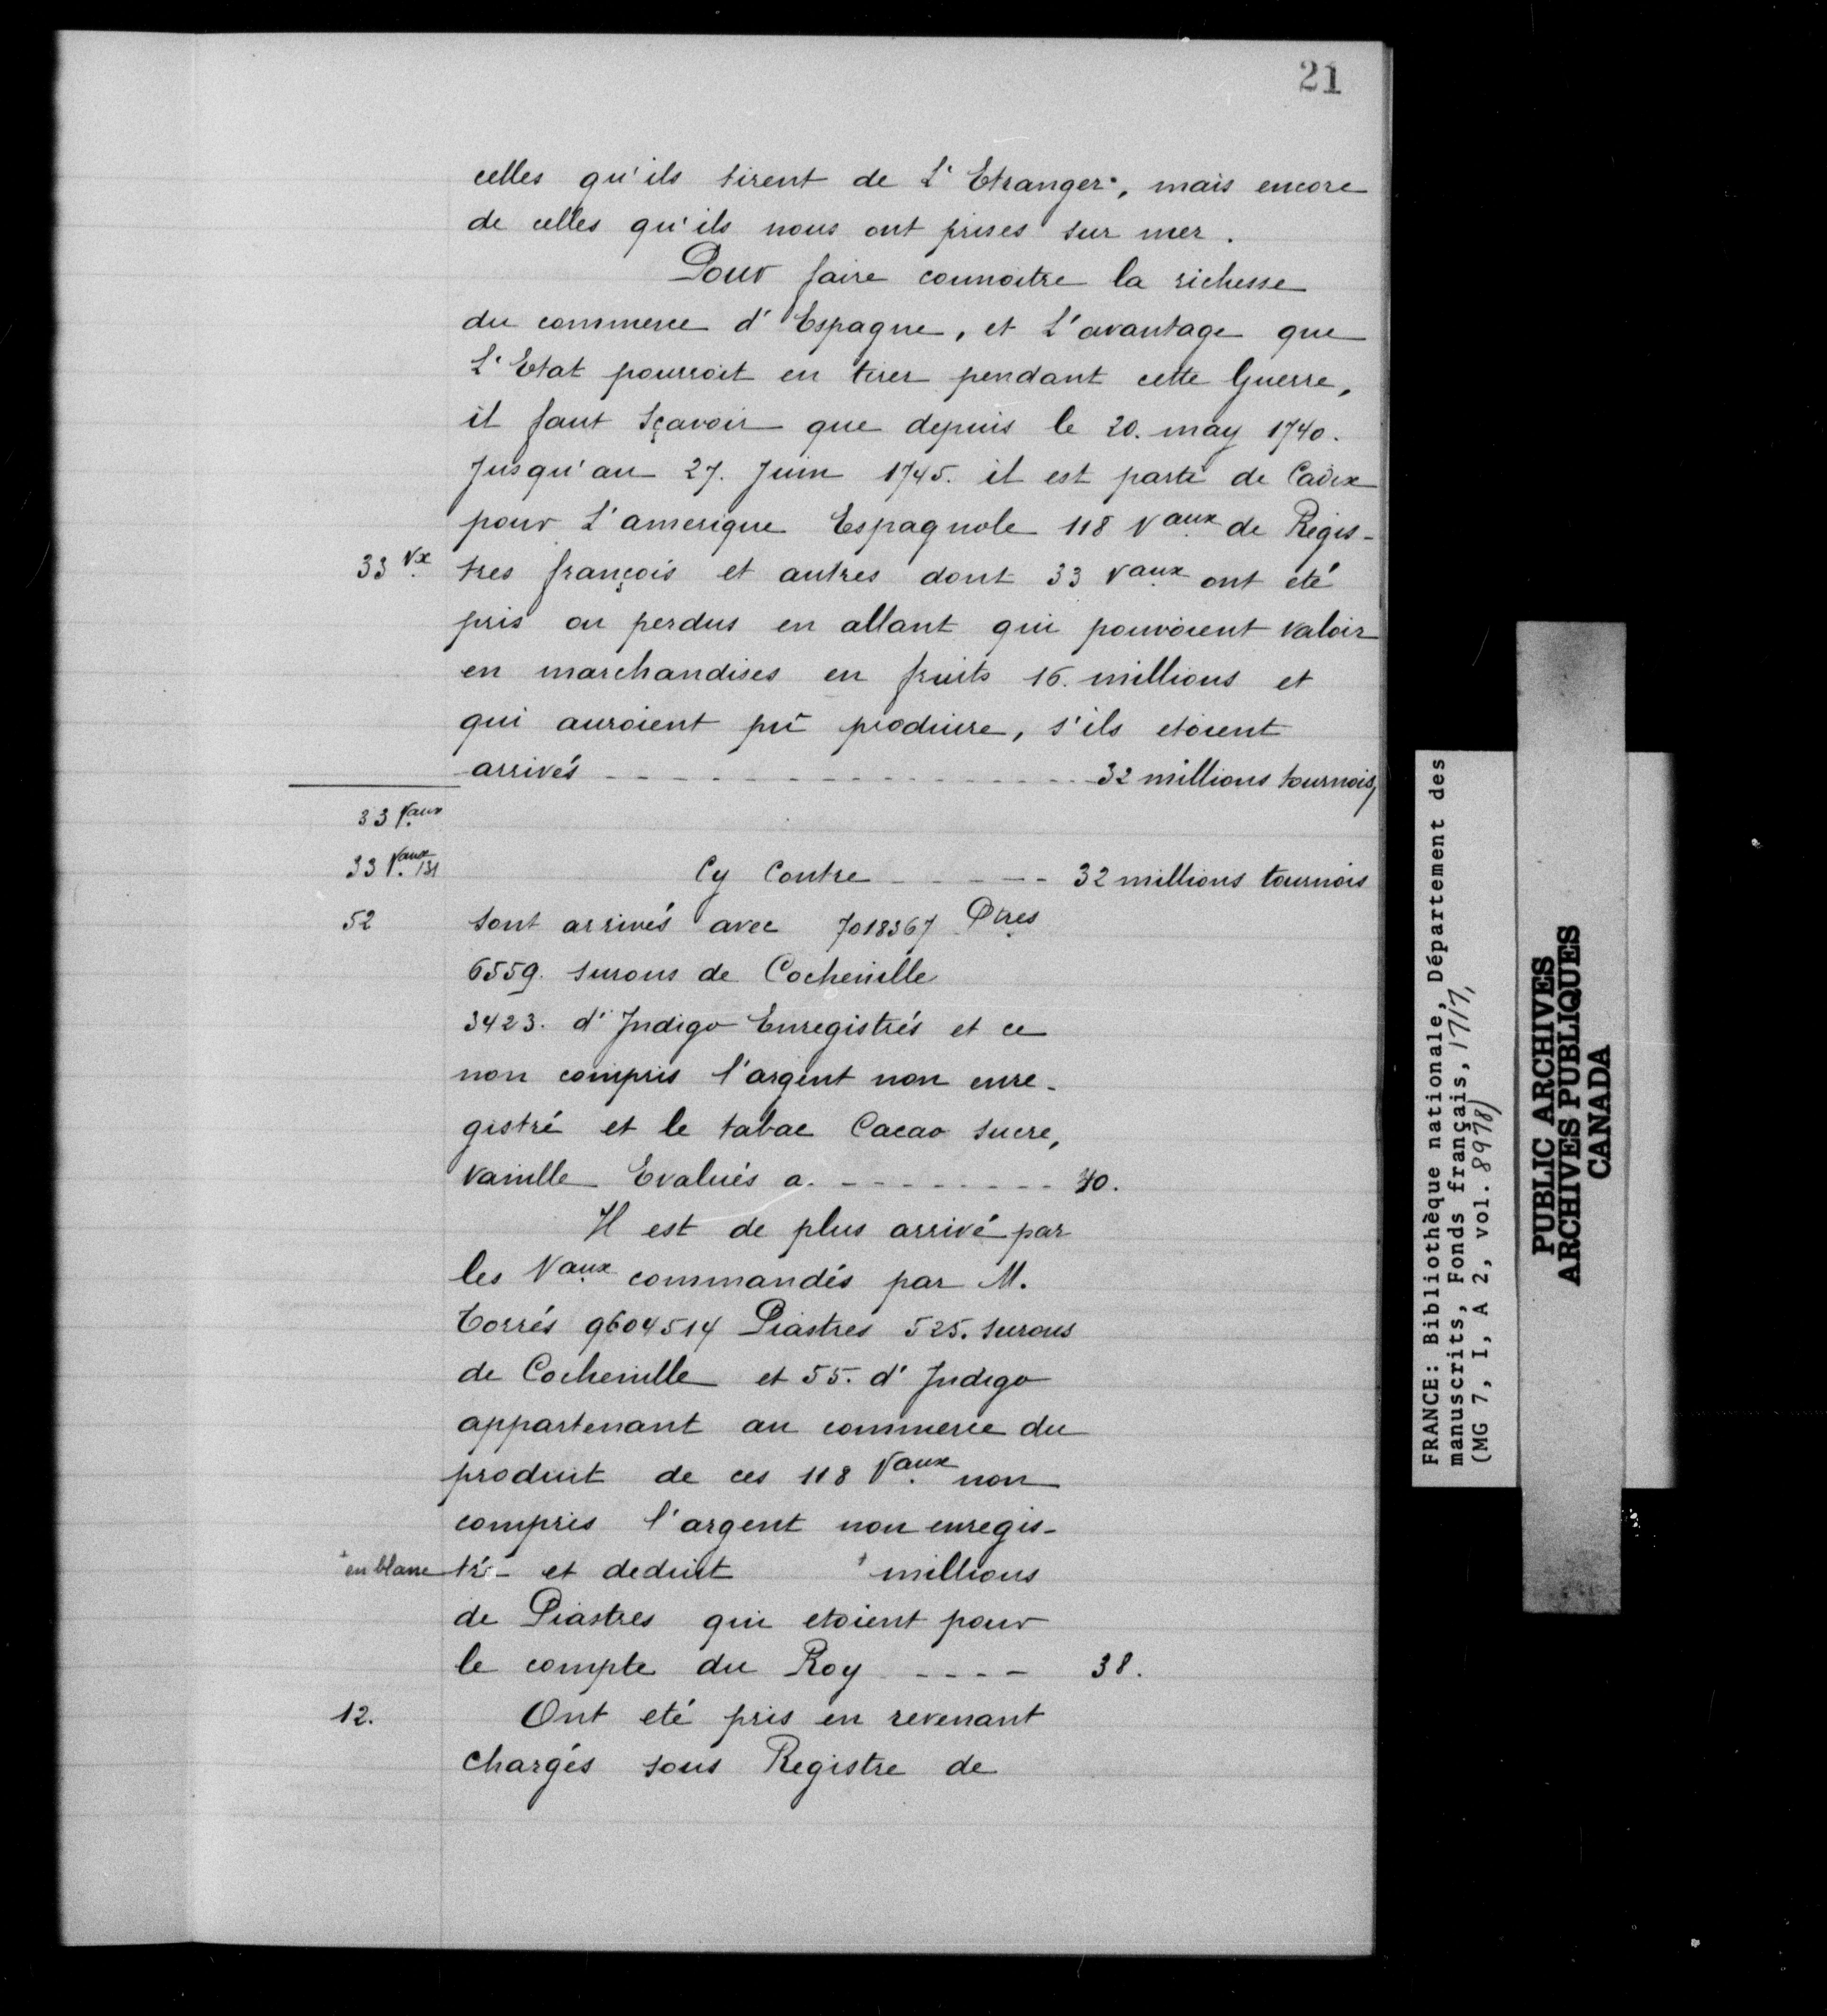 21
celles qu'ils tirent de L'Etranger, mais encore
de celles qu'ils nous ont prises sur mer.
Pour faire connoitre la richesse
du commerce d'Espagne, et L'avantage que
L'Etat pourroit en tirer pendant cette Guerre,
il faut sçavoir que depuis le 20. may 1740.
Jusqu'au 27. Juin 1745. il est parti de Cadix
pour L'amerique Espagnole 118 Vaux de Regis-
33 Vx tres françois et autres dont 33 Vaux ont été
pris ou perdus en allant qui pouvoient valoir
en marchandises en fruits 16. millions et
qui auroient pû produire, s'ils etoient
arrivés - - - - - - - - - - - - - - - - - - 32 millions tournois,
33 Vaux
33 Vaux Cy Contre - - - - - 32 millions tournois
52 sont arrivés avec 7018367 Ptres
6559. surons de Cochenille
3423. d'Indigo Enregistrés et ce
non compris l'argent non enre-
gistré et le tabac Cacao sucre,
vanille Evalués a. - - - - - - - - - 70.
Il est de plus arrivé par
les Vaux commandés par M.
Torrés 9604514 Piastres 525. surons
de Cochenille et 55. d'Indigo
appartenant au commerce du
produit de ces 118 Vaux non
compris l'argent non enregis-
+ en blanc tré et deduit + millions
de Piastres qui etoient pour
le compte du Roy - - - - 38.
12. Ont eté pris en revenant
chargés sous Registre de
FRANCE: Bibliothèque nationale, Département des
manuscrits, Fonds français, 1717,
(MG 7, I, A 2, vol. 8978)
PUBLIC ARCHIVES
ARCHIVES PUBLIQUES
CANADA